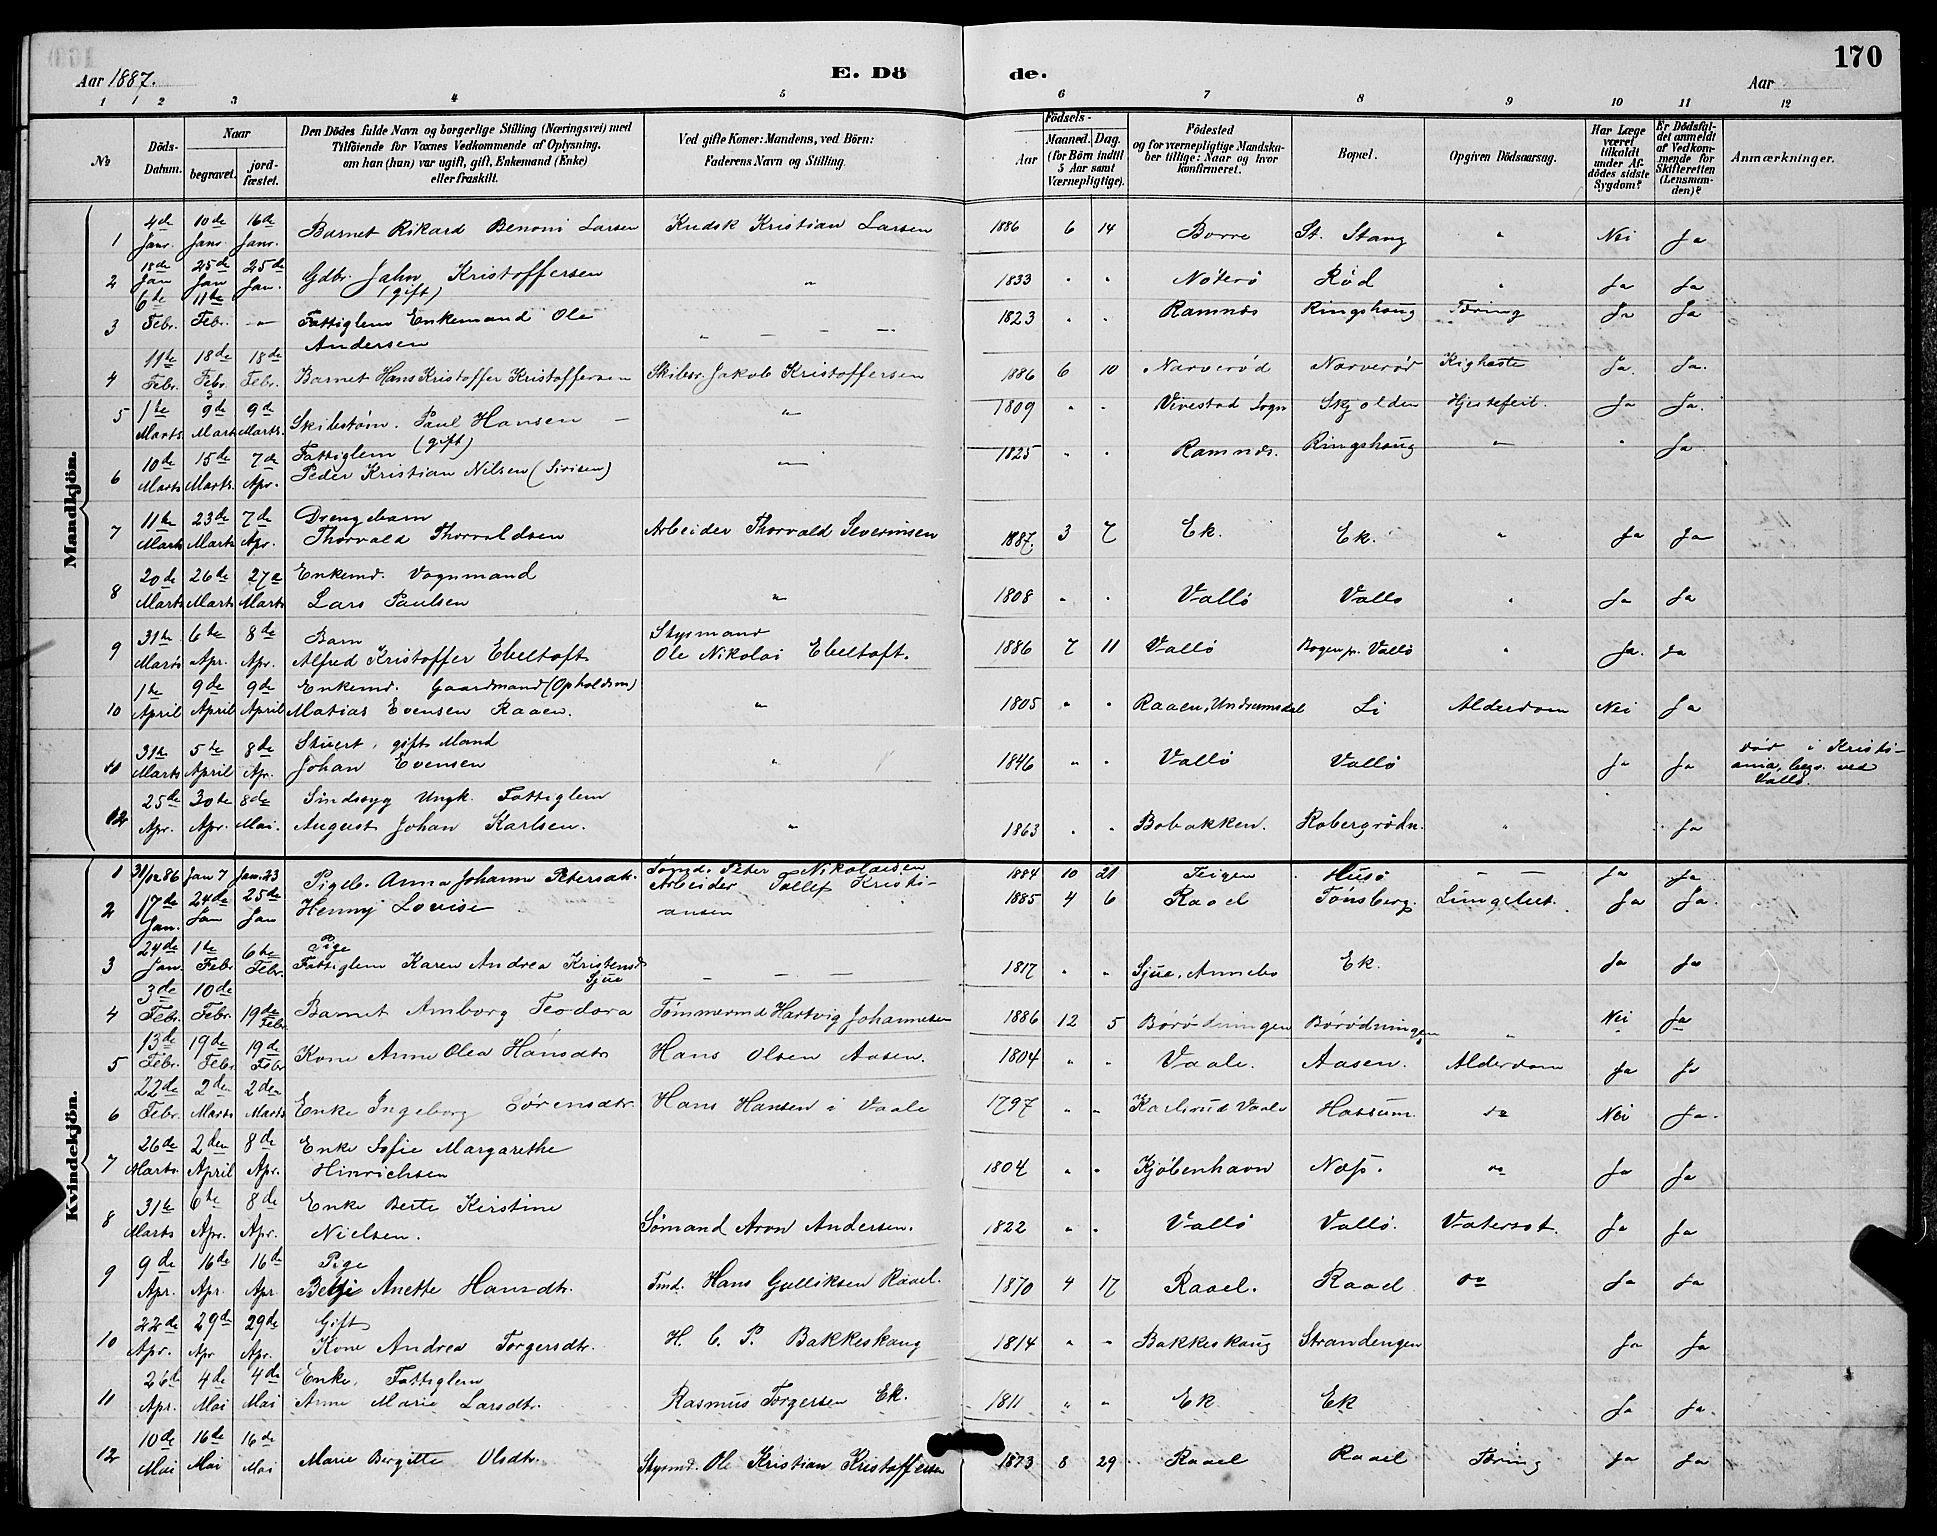 170
Aar 1887.
E. Dö
de.
Aar
1 1 2 3 4 5 6 7 8 9 10 11 12
No
Döds-
Datum.
Naar
begravet.
jord-
fæstet.
Den Dödes fulde Navn og borgerlige Stilling (Næringsvei) med
Tilföiende for Voxnes Vedkommende af Oplysning,
om han (hun) var ugift, gift, Enkemand (Enke)
eller fraskilt.
Ved gifte Koner: Mandens, ved Börn:
Faderens Navn og Stilling.
Födsels-
Aar
Maaned. Dag.
(for Börn indtil
5 Aar samt
Værnepligtige).
Födested
og for værnepligtige Mandska-
ber tillige: Naar og hvor
konfirmeret.
Bopæl.
Opgiven Dödsaarsag.
Har Læge
været
tilkaldt
under Af-
dödes sidste
Sygdom?
Er Dödsfal-
det anmeldt
af Vedkom-
mende for
Skifteretten
(Lensman-
den)?
Anmærkninger.
Mandkjön.
1 4de Janr. 10de Janr. 16de Janr. Barnet Rikard Benoni Larsen Kudsk Kristian Larsen 1886 6 14 Borre St. Stang " Nei Ja
2 18de Jan 25de Jan 25de Jan. Gdbr. Jahn Kristoffersen (gift) " 1833 " " Nøterø Rød " Ja Ja
3 6te Febr. 11te Febr. — Fattiglem Enkemand Ole
Andersen " — — — 1823 " " Ramnes Ringshaug Tæring Ja Ja
4 11te Febr. 18de Febr. 18de Febr. Barnet Hans Kristoffer Kristoffersen Skibsr. Jakob Kristoffersen 1886 6 10 Narverød Narverød Kighoste Ja. Ja.
5 1te Marts 9de Marts 9de Marts. Skibstøm. Paul Hansen — (gift) " 1809 " " Vivestad Sogn Skjolden Hjertefeil. Ja Ja.
6 10de Marts 15de Marts. 7de Apr. Fattiglem
Peder Kristian Nilsen " 1825 " " Ramnes. Ringshaug " " Ja
7 11te Marts 23de Marts 7de Apr. Drengebarn
Thorvald Thorvaldsen Arbeider Thorvald Severinsen 1887. 3 7 Ek. Ek. " Ja Ja
8 20de Marts 26de Marts 27de Marts Enkemd. Vognmand
Lars Paulsen " 1808 " " Vallø Vallø " Ja Ja
9 31te Marts 6te Apr. 8de Apr. Barn
Alfred Kristoffer Ebeltoft Stysmand
Ole Nikolai Ebeltoft. 1886 7 11 Vallø Bogen pr. Vallø " Ja. Ja
10 1te April 9de April 9de April Enkemd. Gaardmand (Opholdsm)
Matias Evensen Raaen. " 1805 " " Raaen, Undrumsdal Li Alderdom Nei Ja
11 31te Marts 5te April 8de Apr. Stuert, gift Mand
Johan Evensen " 1846 " " Vallø Vallø Ja Ja død i Kristi-
ania, begr. ved
Vallø.
12 25de Apr. 30te Apr. 8de Mai. Sindssyg Ungk. Fattiglem
August Johan Karlsen. " 1863 " " Bobakken. Robergrødn. " Ja
Kvindekjön.
1 31/12 86 Jan 7 Jan. 23 Pigeb. Anna Johanne Petersdtr. Tømd. Peter Nikolaisen 1884 10 21 Teigen Husø — — Ja Ja
2 17de Jan. 24de Jan 25de Jan Henny Lovise Arbeider Tollef Kristi-
ansen 1885 4 6 Raael Tønsberg. Ja Ja.
3 24de Jan. 1te Febr 6te Febr. Pige
Fattiglem Karen Andrea Kristensd
Sjue — — — 1817 " " Sjue, Annebo Ek. Ja Ja
4 3de Febr. 10de Febr. 19de Febr. Barnet Amborg Teodora Tømmermd Hartvig Johannesen 1886 12 5 Børødningen Børødningen " Nei Ja
5 13de Febr. 19de Febr 19de Febr Kone Anne Olea Hansdtr Hans Olsen Aasen. 1804 " " Vaale. Aasen. Alderdom Ja Ja
6 22de Febr. 2den Marts 2den Marts Enke Ingeborg Sørensdtr. Hans Hansen i Vaale 1797 " " Vaale do Nei Ja.
7 26de Marts. 2den April 8de Apr. Enke Sofie Margarethe
Hinrichsen 1804 " " Kjøbenhavn Næss. do Ja Ja
8 31te Marts 6te Apr. 8de Apr. Enke Berte Kirstine
Nielsen. Sømand Aron Andersen. 1822 " " Vallø Vallø. Vatersot. Ja Ja
9 9de Apr. 16de Apr. 16de Apr Pige
Anette Hansdtr. Tmd. Hans Gulliksen Raael. 1870 4 17 Raael. Raael do Ja Ja
10 22de Apr. 29de Apr 29de Apr. Gift
Kone Andrea Torgersdtr. H. C. P. Bakkeskaug 1814 " " Bakkeskaug Strandengen Ja Ja
11 26de Apr. 4de Mai 4de Mai Enke, Fattiglem
Anne Marie Larsdtr. Rasmus Torgersen Ek. 1811 " " Ek Ek Ja Ja.
12 10de Mai 16de Mai 16de Mai Marie Bergitte Olsdtr. Stysmd. Ole Kristian Kristoffersen 1873 8 29 Raael Raael Tæring Ja Ja